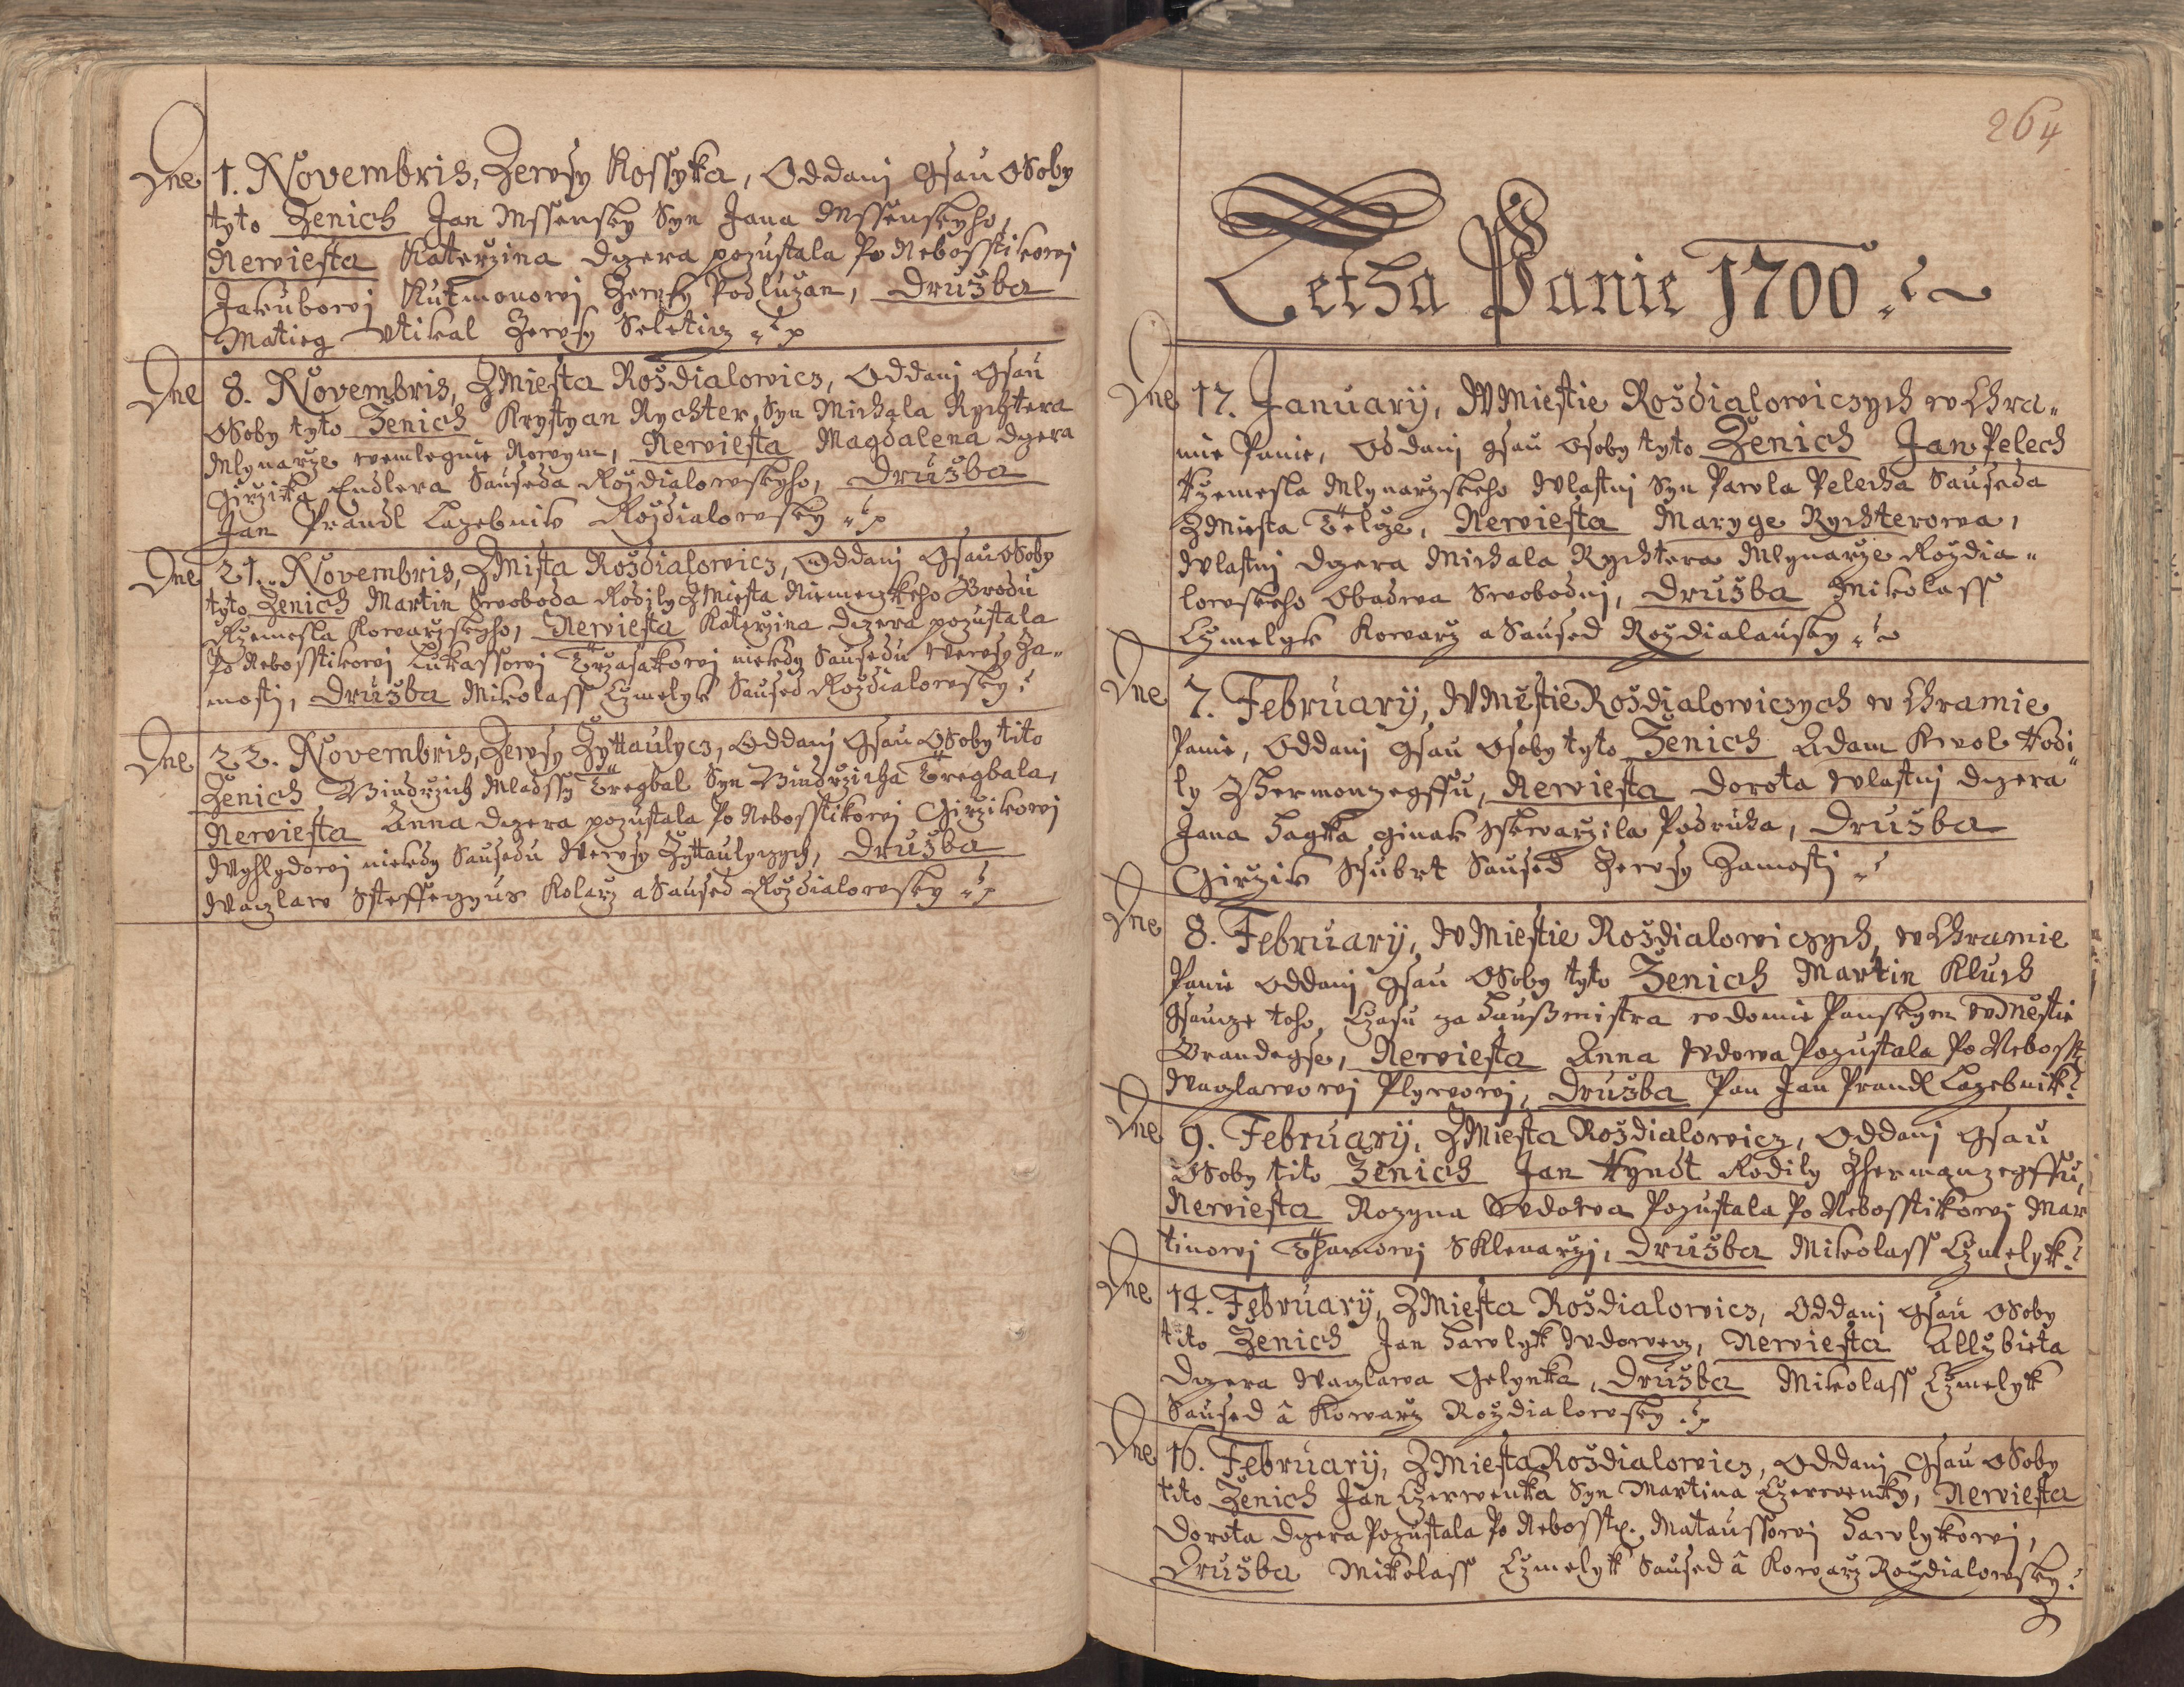 Dne 1. Novembris, Zewsy Kossyka, Oddani gsau osoby
tyto Zenich Jan Mssensky Syn Jana Mssenskyho,
Newiesta Katerzina Dczera pozustala Po Nebosstikowj
Jakubowj Kutmonowj Zewsy Podluzan, Druzba
Matieg Vtikal Zewsy Seleticz
Dne 8. Novembris, Z Miesta Rozdialowicz, Oddanj gsau
osoby tyto Zenich Krystyan Rychter, Syn Michala Rychtera
Mlynarze wemlegnie Nowym, Newiesta Magdalena Dczera
Girzika Endlera Sauseda Rozdialowskyho, Druzba
Jan Prandl Lazebnik Rozdialowsky
Dne 21. Novembris, Z Mista Rozdialowicz, Oddanj gsau osoby
tyto Zenich Martin Swoboda Rodily z Miesta Niemeczkeho Brodu
Rzemesla Kowarzskyho, Newiesta Katerzina Dczera pozustala
Po Nebosstikowj Lukassowj Trzasakowj niekdy Sausedu wewsy Za-
mostj, Druzba Mikolass Czmelyk Saused Rozdialowsky
Dne 22. Novembris, Zewsy Zyttaulycz, Oddanj gsau osoby tito
Zenich Bindrzich Mladssy Tregbal Syn Bindrzicha Tregbala,
Newiesta Anna Dczera pozustala Po Nebosstikowj Girzikowj
Wyhlydowj niekdy Sausedu Wewsy Zyttaulyczych, Druzba
WaczlawSsteffegnus Kolarz a Saused Rozdialowsky
264
Letha Panie 1700
Dne 17. Januarij, W Miestie Rozdialowiczych w Chra-
mie Panie, Oddanj gsau osoby tyto Zenich Jan Pelech
Rzemesla Mlynarzskeho Wlastnj Syn Pawla Pelecha Sauseda
Z Miesta Telcze, Newiesta Maryge Rychterowa,
Wlastnj Dczera Michala Rychtera Mlynarze Rozdia-
lowskeho Obadwa Swobodnj, Druzba Mikolass
Czmelyk Kowarz a Saused Rozdialausky
Dne 7. Februarij, W Mestie Rozdialowiczych w Chramie
Panie, Oddanj gsau osoby tyto Zenich Adam Kwol Rodi-
ly Z Hermonzegssu, Newiesta Dorota Wlastnj Dczera
Jana Hagka ginak Sskwarzila Podruha, Druzba
Girzik Ssubrt Saused Zewsy Zamostj
Dne 8. Februarij, W Miestie Rozdialowiczych, w Chramie
Panie Oddanj gsau osoby tyto Zenich Martin Kluch
gsaucze toho Czasu za Haußmistra w domie Panskym w Mestie
Brandegse, Newiesta Anna Wdowa Pozustala Po Nebosst.
Waczlawowj Plywowj, Druzba Pan Jan Prandl Lazebnik
Dne 9. Februarij, Z Miesta Rozdialowicz, Oddanj gsau
Osoby tito Zenich Jan Kyndt Rodily Zhermanzegssu,
Newiesta Rozyna Wdowa Pozustala Po Nebosstikowj Mar
tinowj Thamowj Sklenarzj, Druzba Mikolass Czmelyk
Dne 14. Februarij, Z Miesta Rozdialowicz, Oddanj gsau osoby
tito Zenich Jan Hawlyk Wdowecz, Newiesta Allzbieta
Dczera Waczlawa Gelynka, Druzba Mikolass Czmelyk
Saused â Kowarz Rozdialowsky
Dne 16. Februarij, Z Miesta Rozdialowicz, Oddanj gsau osoby
tito Zenich Jan Czerwenka Syn Martina Czerwenky, Newiesta
Dorota Dczera Pozustala Po Nebosstg. Mataussowj Hawlykowj,
Druzba Mikolass Czmelyk Saused â Kowarz Rozdialowsky